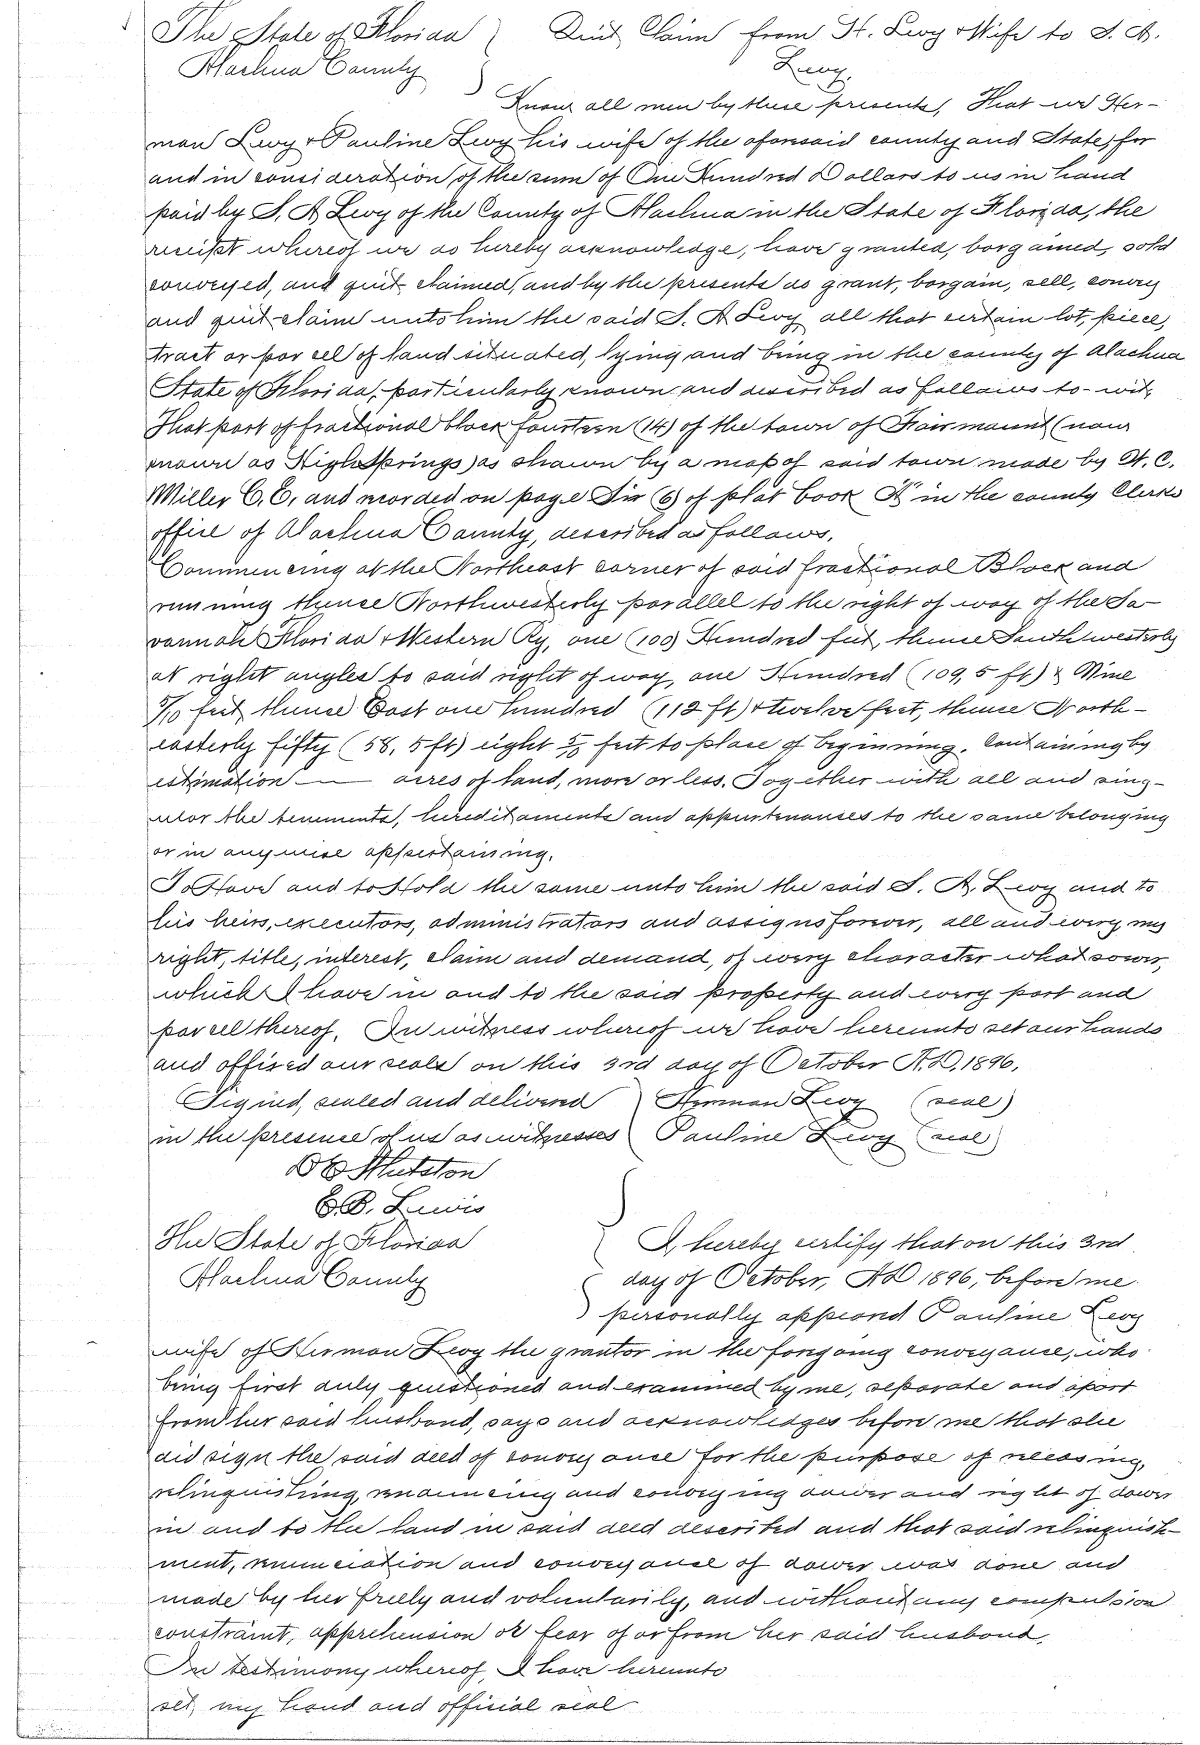 The State of Florida Quit Claim from H. Levy & Wife to S. A.
Alachua County Levy.
Know all men by these presents, That we Her-
man Levy & Pauline Levy his wife of the aforesaid county and State, for
and in consideration of the sum of One Hundred Dollars to us in hand
paid by S. A Levy of the County of Alachua in the State of Florida, the
receipt whereof we do hereby acknowledge, have granted, bargained, sold
conveyed, and quit claimed, and by the presents do grant, bargain, sell, convey
and quit claim unto him the said S. A Levy all that certain lot, piece,
tract or parcel of land situated, lying and being in the county of Alachua
State of Florida, particularly known and described as follows to-wit,
That part of fractional block fourteen (14) of the town of Fairmount (now
known as High Springs) as shown by a map of said town made by H. C.
Miller C. E, and recorded on page Six (6) of plat book "A" in the county Clerks
office of Alachua County, described as follows.
Commencing at the Northeast corner of said fractional Block and
running thence Northwesterly parallel to the right of way of the Sa-
vannah Florida & Western Ry, one (100) Hundred feet, thence Southwesterly
at right angles to said right of way, one Hundred (109,5 ft) & Nine
5/10 feet thence East one hundred (112 ft) & twelve feet, thence North-
easterly fifty (58,5 ft) eight 5/10 feet to place of beginning. Containing by
estimation — acres of land, more or less. Together with all and sing-
ular the tenements, hereditaments and appurtenances to the same belonging
or in anywise appertaining.
To Have and to Hold the same unto him the said S. A. Levy and to
his heirs, executors, administrators and assigns forever, all and every my
right, title, interest, claim and demand, of every character whatsoever,
which I have in and to the said property and every part and
parcel thereof. In witness whereof we have hereunto set our hands
and affixed our seals on this 3rd day of October A.D. 1896.
Signed, sealed and delivered Herman Levy (seal)
in the presence of us as witnesses Pauline Levy (seal)
Hutston
E. B. Lewis
The State of Florida I, hereby certify that on this 3rd
Alachua County day of October, AD 1896, before me
personally appeared Pauline Levy
wife of Herman Levy the grantor in the foregoing conveyance, who
being first duly questioned and examined by me, separate and apart
from her said husband, says and acknowledges before me that she
did sign the said deed of conveyance for the purpose of releasing,
relinquishing, renouncing and conveying dower and right of dower
in and to the land in said deed described and that said relinquish-
ment, renunciation and conveyance of dower was done and
made by her freely and voluntarily, and without any compulsion
constraint, apprehension or fear of or from her said husband.
In testimony whereof, I have hereunto
set my hand and official seal